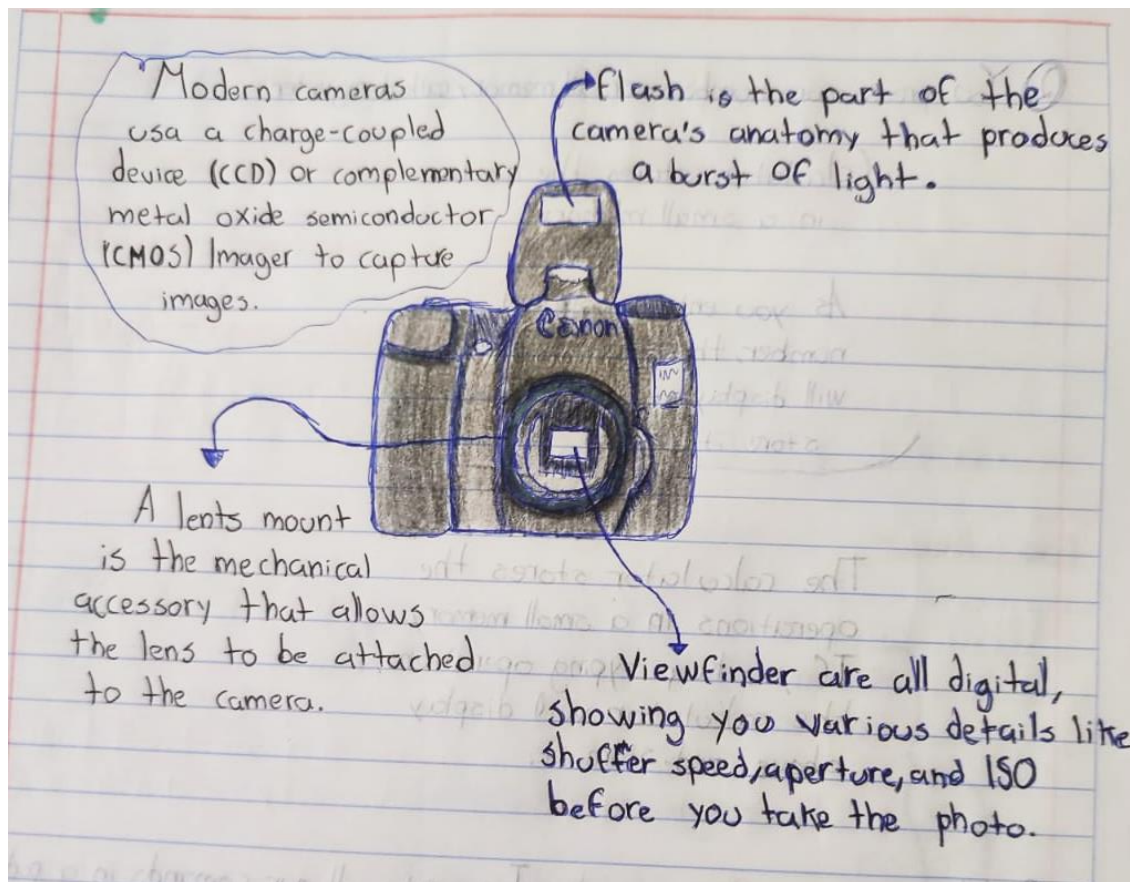 Modern cameras
usa a charge-coupled
device (CCD) or complementary
metal oxide semiconductor
(CMOS) Imager to capture
images.
flash is the part of the
camera's anatomy that produces
a burst of light.
Canon
A lents mount
is the mechanical
accessory that allows
the lens to be attached
to the camera.
Viewfinder are all digital,
showing you various details like
shuffer speed, aperture, and ISO
before you take the photo.